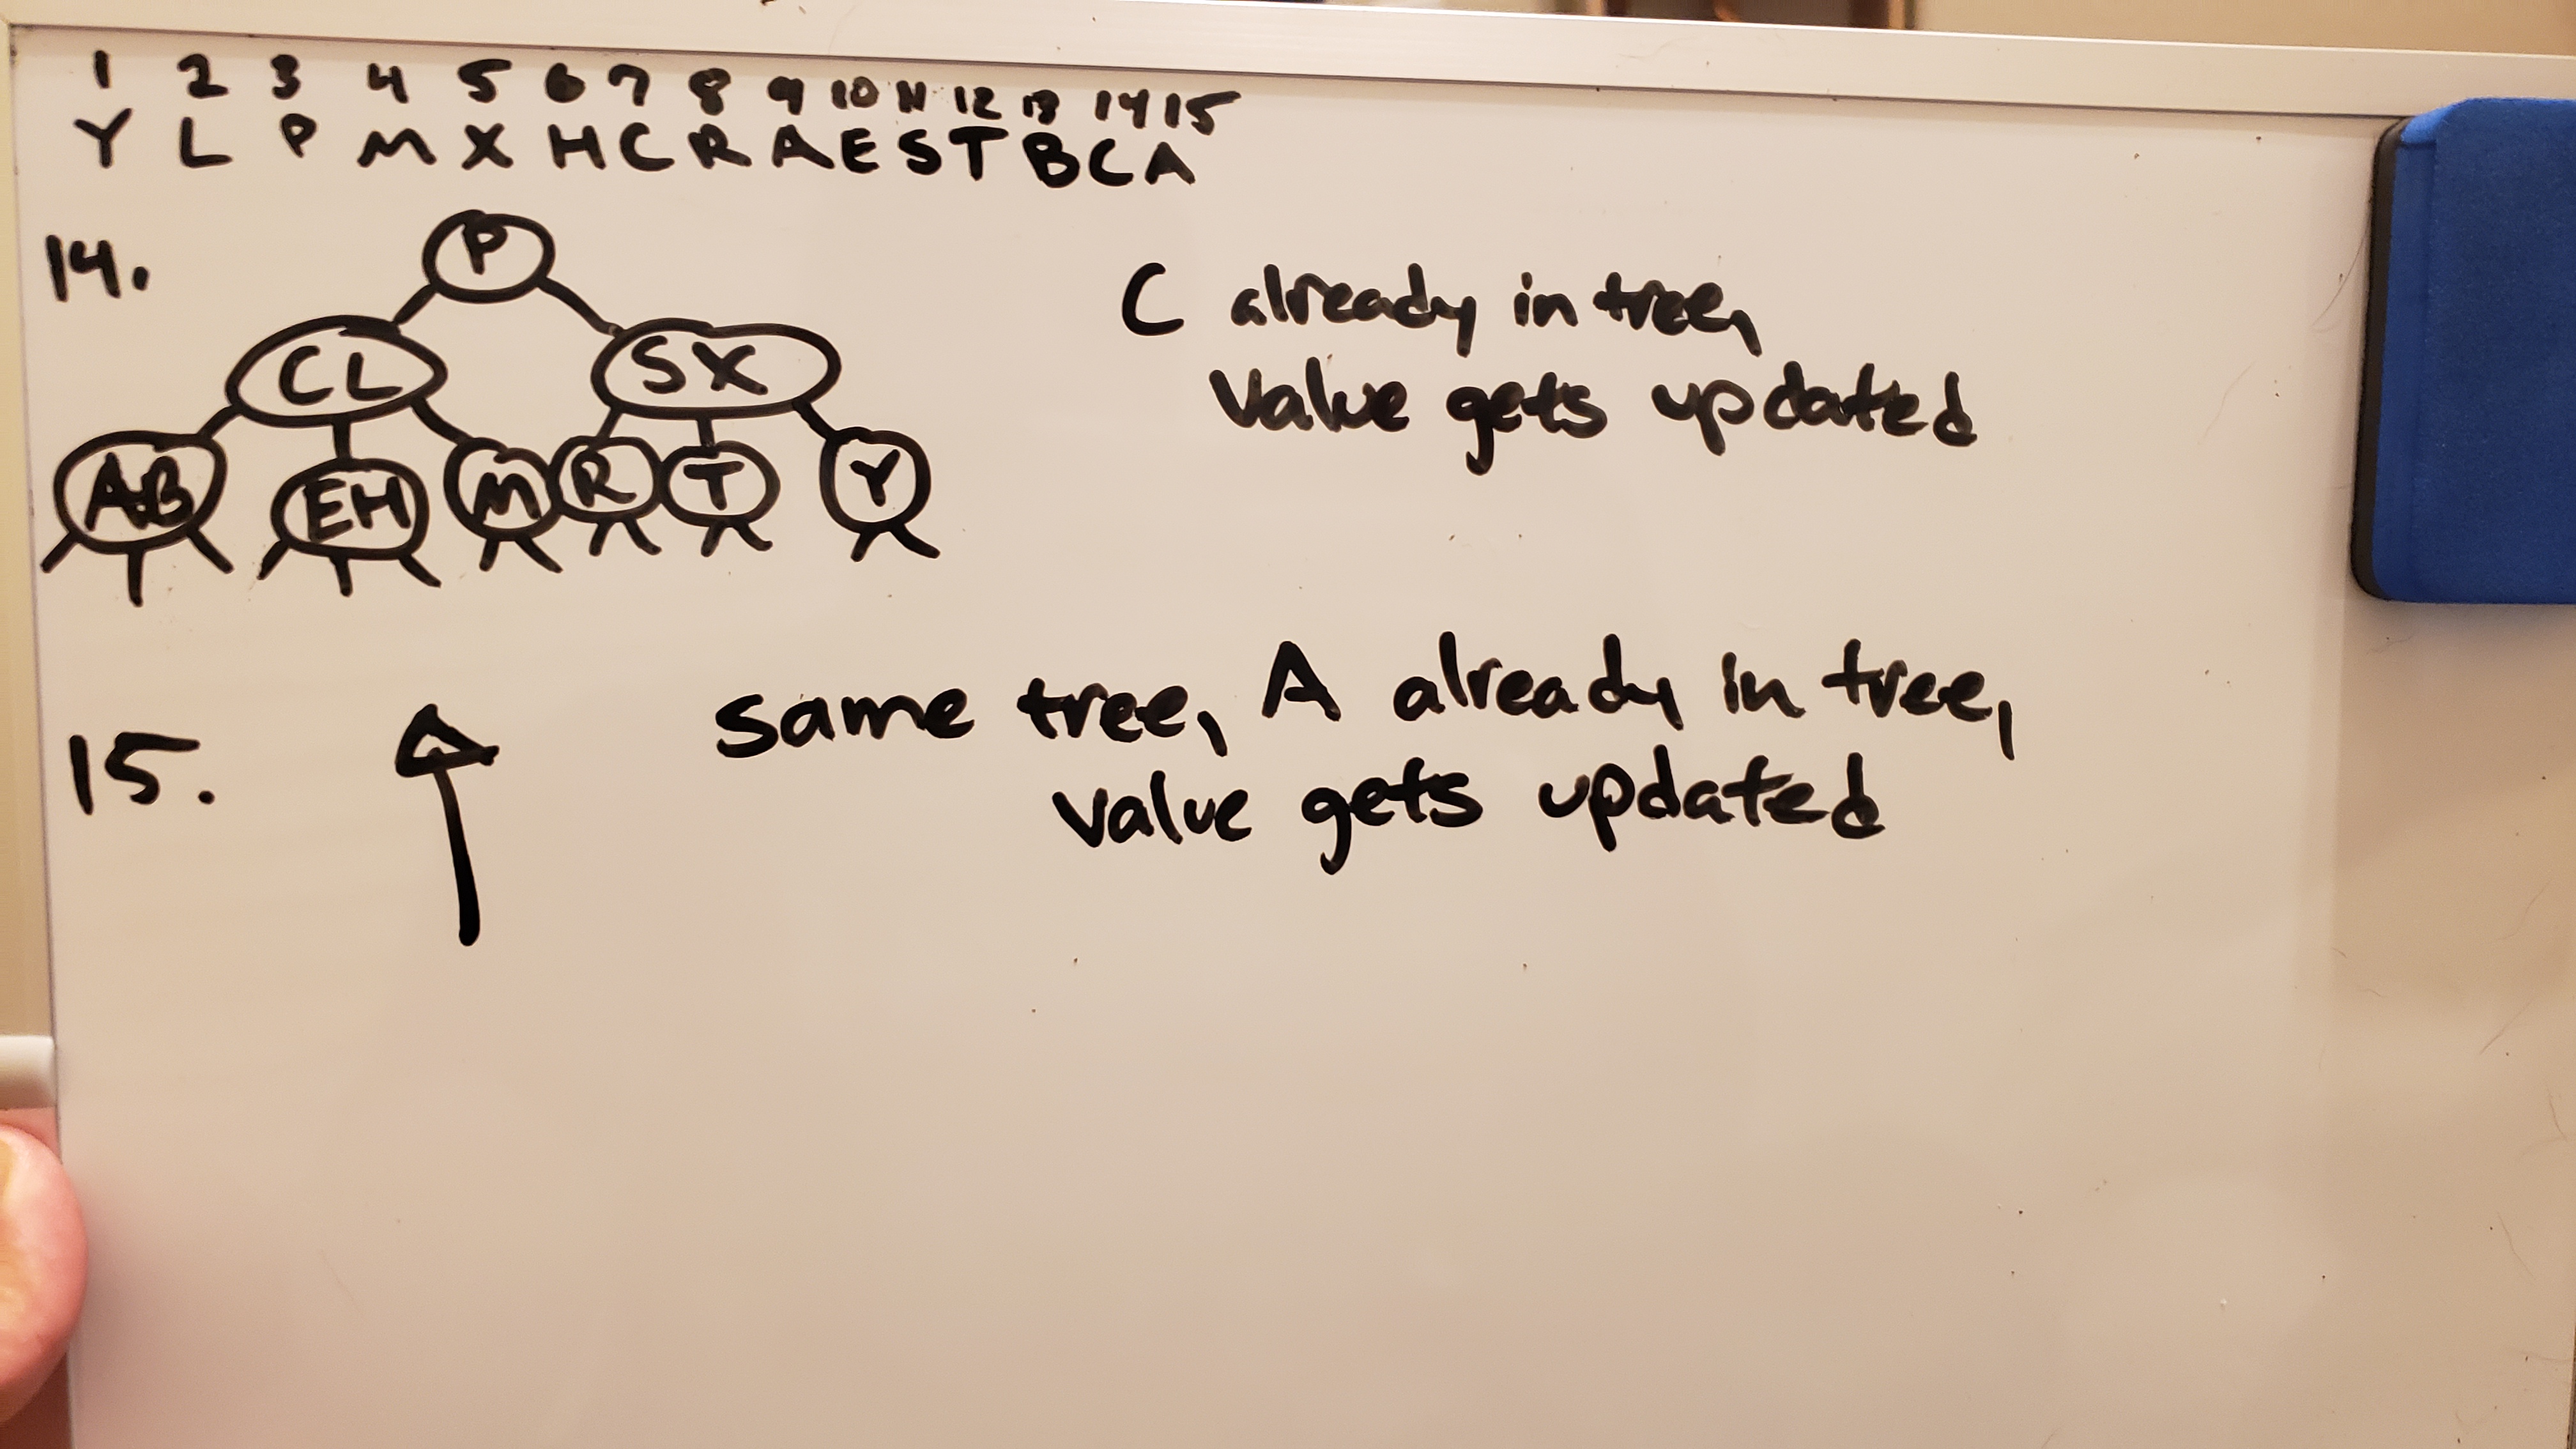 1 2 3 4 5 6 7 8 9 10 11 12 13 14 15
Y L P M X H C R A E S T B C A
14.
P
CL SX
AB EH M R T Y
C already in tree,
value gets updated
15.
same tree, A already in tree,
value gets updated